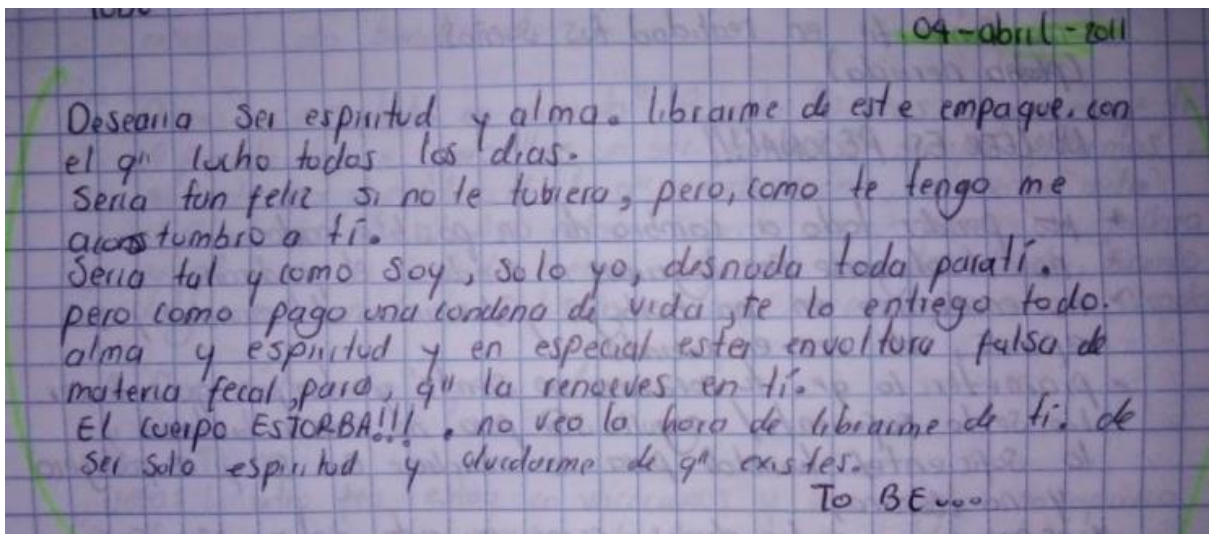 04-abril-2011
Desearia ser espiritud y alma. librarme de este empaque. con
el qⁿ lucho todos los dias.
Seria tan feliz si no te tubiera, pero, como te tengo me
acostumbro a tí.
Seria tal y como soy, solo yo, desnuda toda paratí.
pero como pago una condena de vida, te lo entrego todo.
alma y espiritud y en especial esta envoltura falsa de
materia fecal, para, qⁿ la renueves en tí.
El cuerpo ESTORBA!!!. no veo la hora de librarme de ti. de
ser solo espiritud y olvidarme de qⁿ existes.
TO BE....